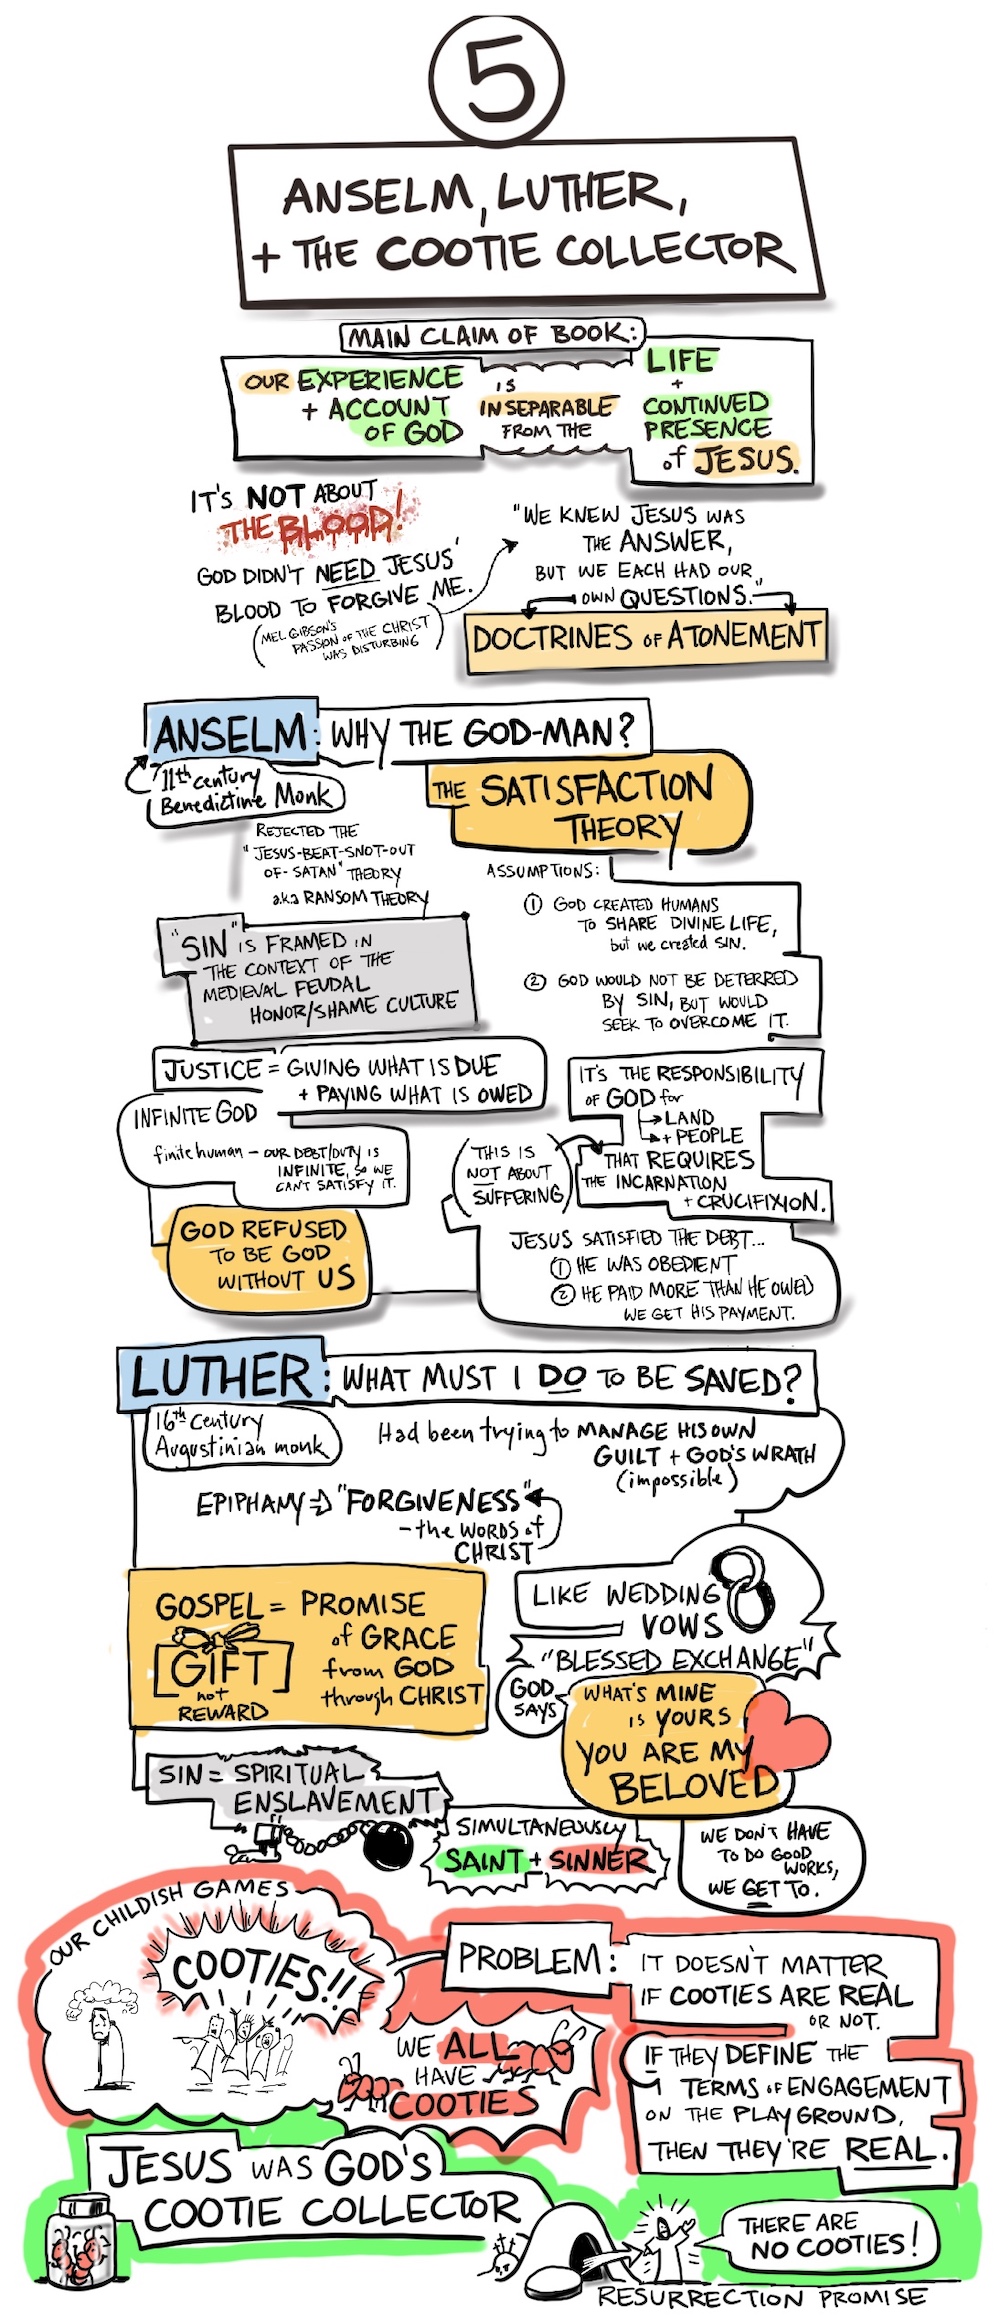 5
ANSELM, LUTHER,
+ THE COOTIE COLLECTOR
MAIN CLAIM OF BOOK:
OUR EXPERIENCE
+ ACCOUNT
OF GOD
IS
INSEPARABLE
FROM THE
LIFE
+
CONTINUED
PRESENCE
of JESUS.
IT'S NOT ABOUT
THE BLOOD!
GOD DIDN'T NEED JESUS'
BLOOD TO FORGIVE ME.
(MEL GIBSON'S
PASSION OF THE CHRIST
WAS DISTURBING)
"WE KNEW JESUS WAS
THE ANSWER,
BUT WE EACH HAD OUR
OWN QUESTIONS."
DOCTRINES OF ATONEMENT
ANSELM: WHY THE GOD-MAN?
11th century
Benedictine Monk
THE SATISFACTION
THEORY
REJECTED THE
"JESUS-BEAT-SNOT-OUT
OF-SATAN" THEORY
a.k.a RANSOM THEORY
ASSUMPTIONS:
1 GOD CREATED HUMANS
TO SHARE DIVINE LIFE,
but we created SIN.
2 GOD WOULD NOT BE DETERRED
BY SIN, BUT WOULD
SEEK TO OVERCOME IT.
"SIN" IS FRAMED IN
THE CONTEXT OF THE
MEDIEVAL FEUDAL
HONOR/SHAME CULTURE
JUSTICE = GIVING WHAT IS DUE
+ PAYING WHAT IS OWED
INFINITE GOD
finite human – OUR DEBT/DUTY IS
INFINITE, SO WE
CAN'T SATISFY IT.
GOD REFUSED
TO BE GOD
WITHOUT US
IT'S THE RESPONSIBILITY
OF GOD for
LAND
+ PEOPLE
THAT REQUIRES
THE INCARNATION
+ CRUCIFIXION.
(THIS IS
NOT ABOUT
SUFFERING)
JESUS SATISFIED THE DEBT...
1 HE WAS OBEDIENT
2 HE PAID MORE THAN HE OWED
WE GET HIS PAYMENT.
LUTHER: WHAT MUST I DO TO BE SAVED?
16th Century
Augustinian monk
Had been trying to MANAGE HIS OWN
GUILT + GOD'S WRATH
(impossible)
EPIPHANY ⇒ "FORGIVENESS"
– the WORDS of
CHRIST
GOSPEL = PROMISE
of GRACE
from GOD
through CHRIST
GIFT
not
REWARD
LIKE WEDDING
VOWS
"BLESSED EXCHANGE"
GOD
SAYS
WHAT'S MINE
IS YOURS
YOU ARE MY
BELOVED
SIN = SPIRITUAL
ENSLAVEMENT
SIMULTANEOUSLY
SAINT + SINNER
WE DON'T HAVE
TO DO GOOD
WORKS,
WE GET TO.
OUR CHILDISH GAMES
COOTIES!!
WE ALL
HAVE
COOTIES
PROBLEM: IT DOESN'T MATTER
IF COOTIES ARE REAL
OR NOT.
IF THEY DEFINE THE
TERMS OF ENGAGEMENT
ON THE PLAYGROUND,
THEN THEY'RE REAL.
JESUS WAS GOD'S
COOTIE COLLECTOR
THERE ARE
NO COOTIES!
RESURRECTION PROMISE